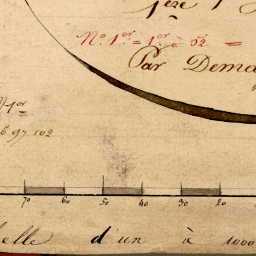 1ère
N.º 1.er = 1.er à 52 =
Par Dema
1er
6.97.102
70 60 50 40 30 20
elle d'un à 1000